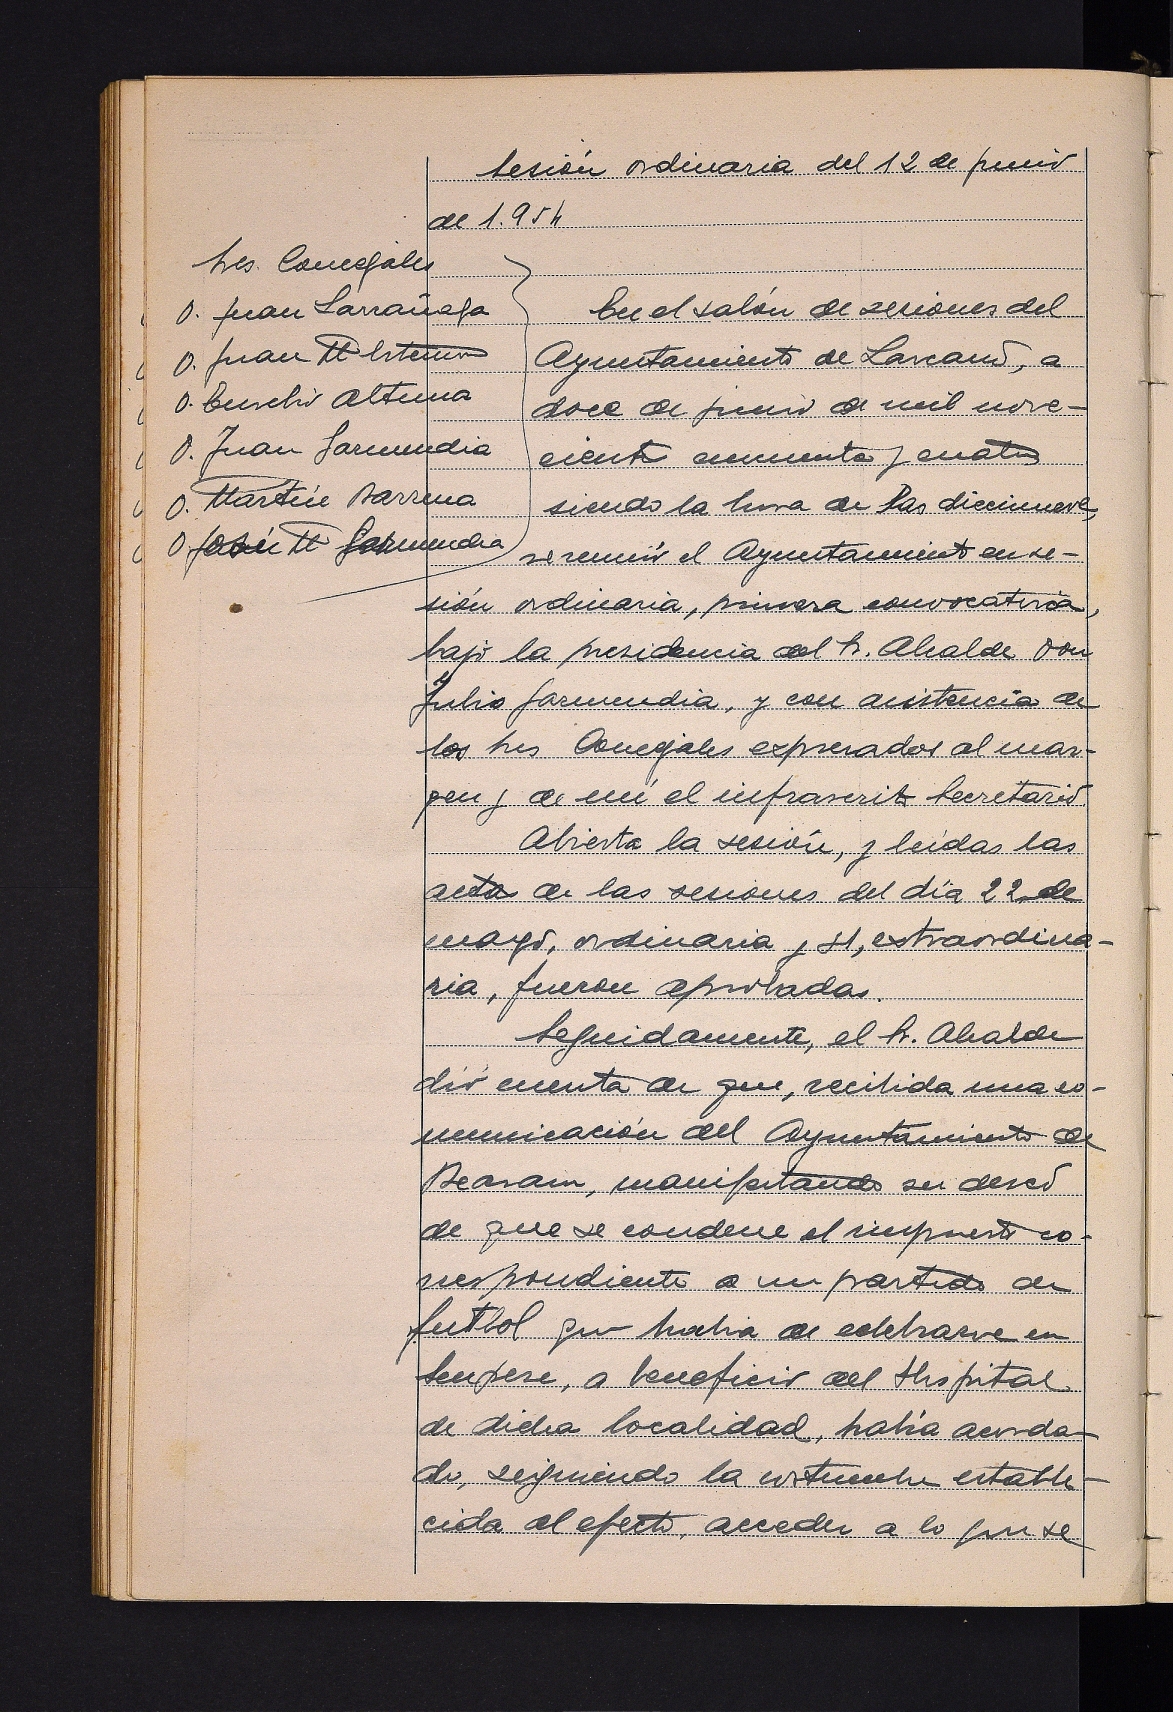 Sesión ordinaria del 12 de junio
de 1.954
Sres. Concejales
D. Juan Larrañaga
D. Juan Mª
D. Eusebio Altuna
D. Juan Garmendia
D. Martín Barrena
D. José Mª Garmendia
En el salón de sesiones del
Ayuntamiento de Lazcano, a
doce de junio de mil nove-
cientos cincuenta y cuatro
siendo la hora de las diecinueve,
se reunió el Ayuntamiento en se-
sión ordinaria, primera convocatoria,
bajo la presidencia del Sr. Alcalde Don
Julio Garmendia, y con asistencia de
los Sres Concejales expresados al mar-
gen y de mí el infrascrito Secretario.
Abierta la sesión, y leídas las
actas de las sesiones del día 22 de
mayo, ordinaria y 31, extraordina-
ria, fueron aprobadas.
Seguidamente, el Sr. Alcalde
dió cuenta de que, recibida una co-
municación del Ayuntamiento de
Beasain, manifestando su deseo
de que se condene el impuesto co-
rrespondiente a un partido de
futbol que había de celebrarse en
Senpere, a beneficio del Hospital
de dicha localidad, había acorda-
do, siguiendo la costumbre estable-
cida al efecto, acceder a lo que se